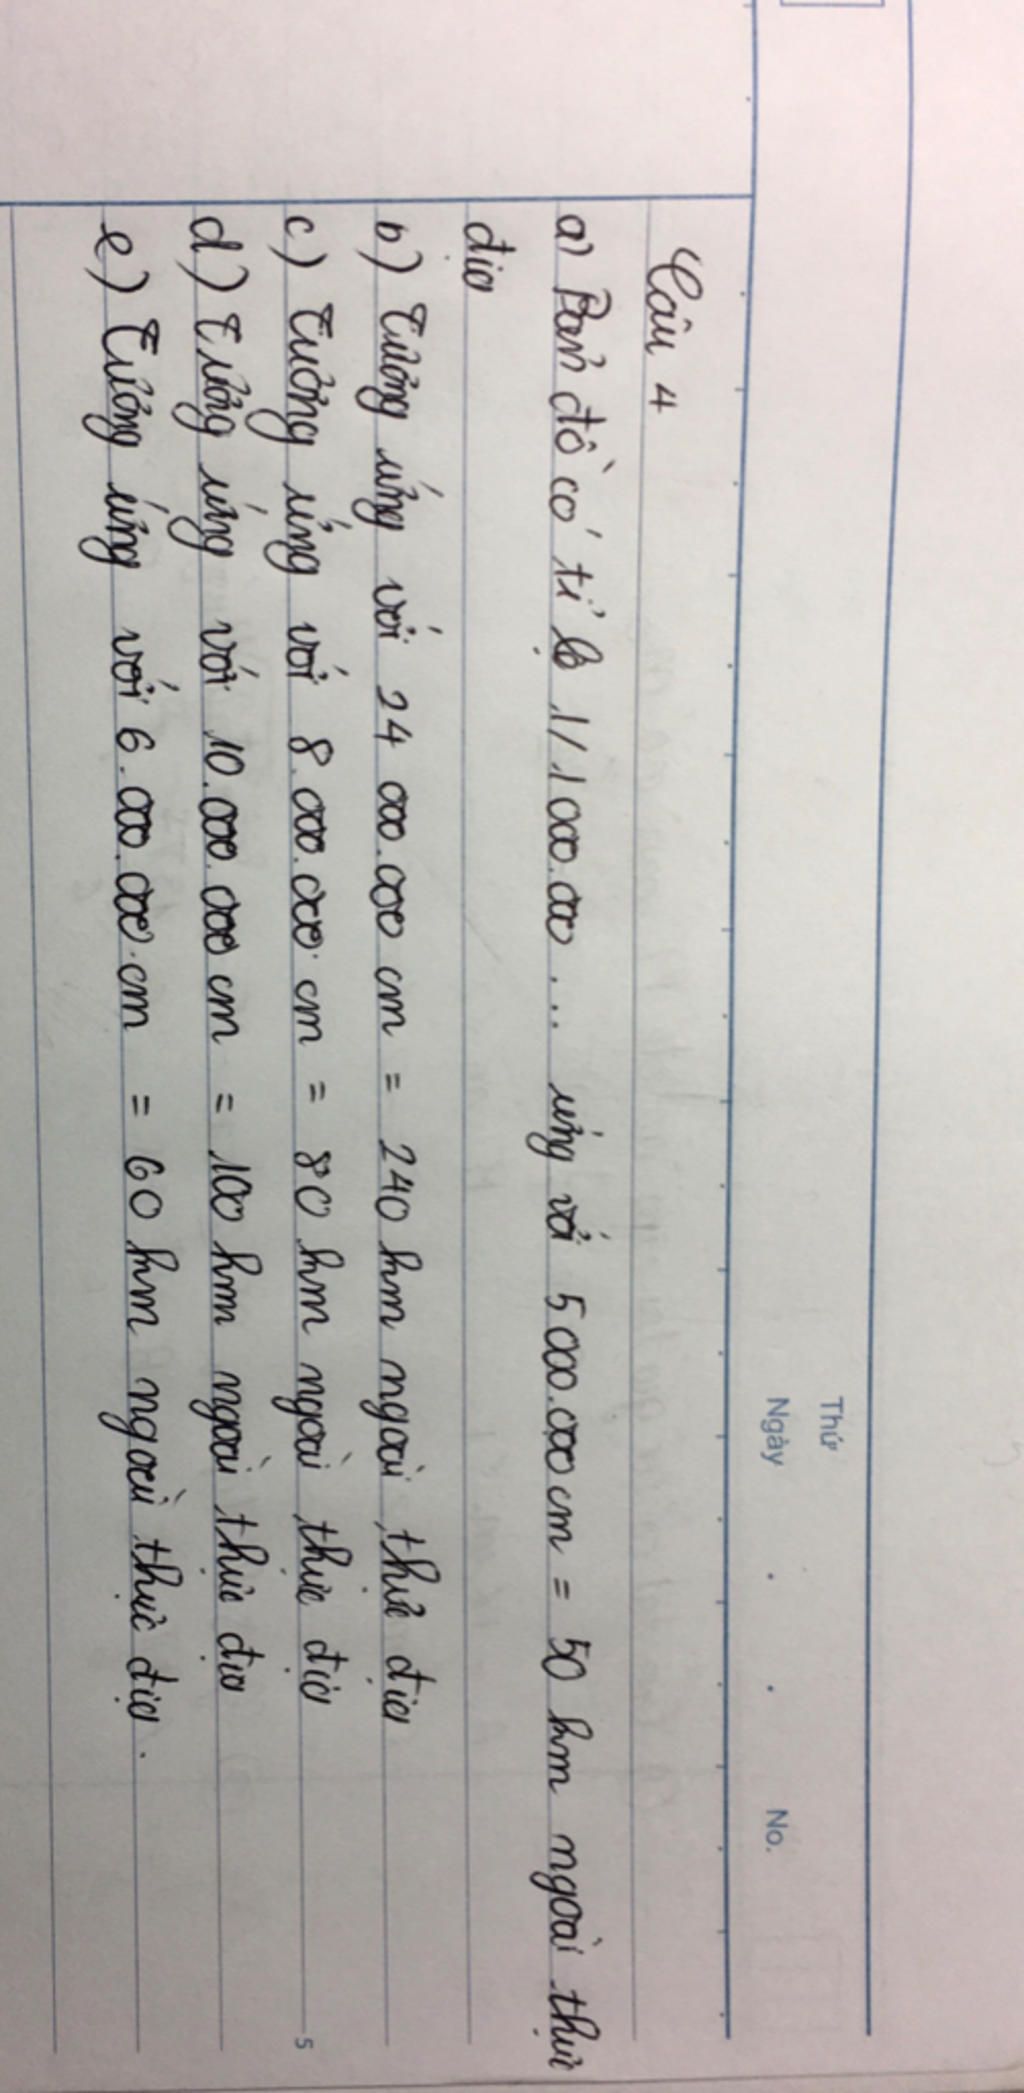 Thứ
Ngày . . No.
Câu 4
a) Bản đồ có tỉ lệ 1/1000.000... ứng với 5000.000cm = 50 km ngoài thực
địa
b) Tương ứng với 24 000.000 cm = 240 km ngoài thực địa
c) Tương ứng với 8.000.000 cm = 80 km ngoài thực địa
d) Tương ứng với 10.000.000 cm = 100 km ngoài thực địa
e) Tương ứng với 6.000.000.cm = 60 km ngoài thực địa.
5